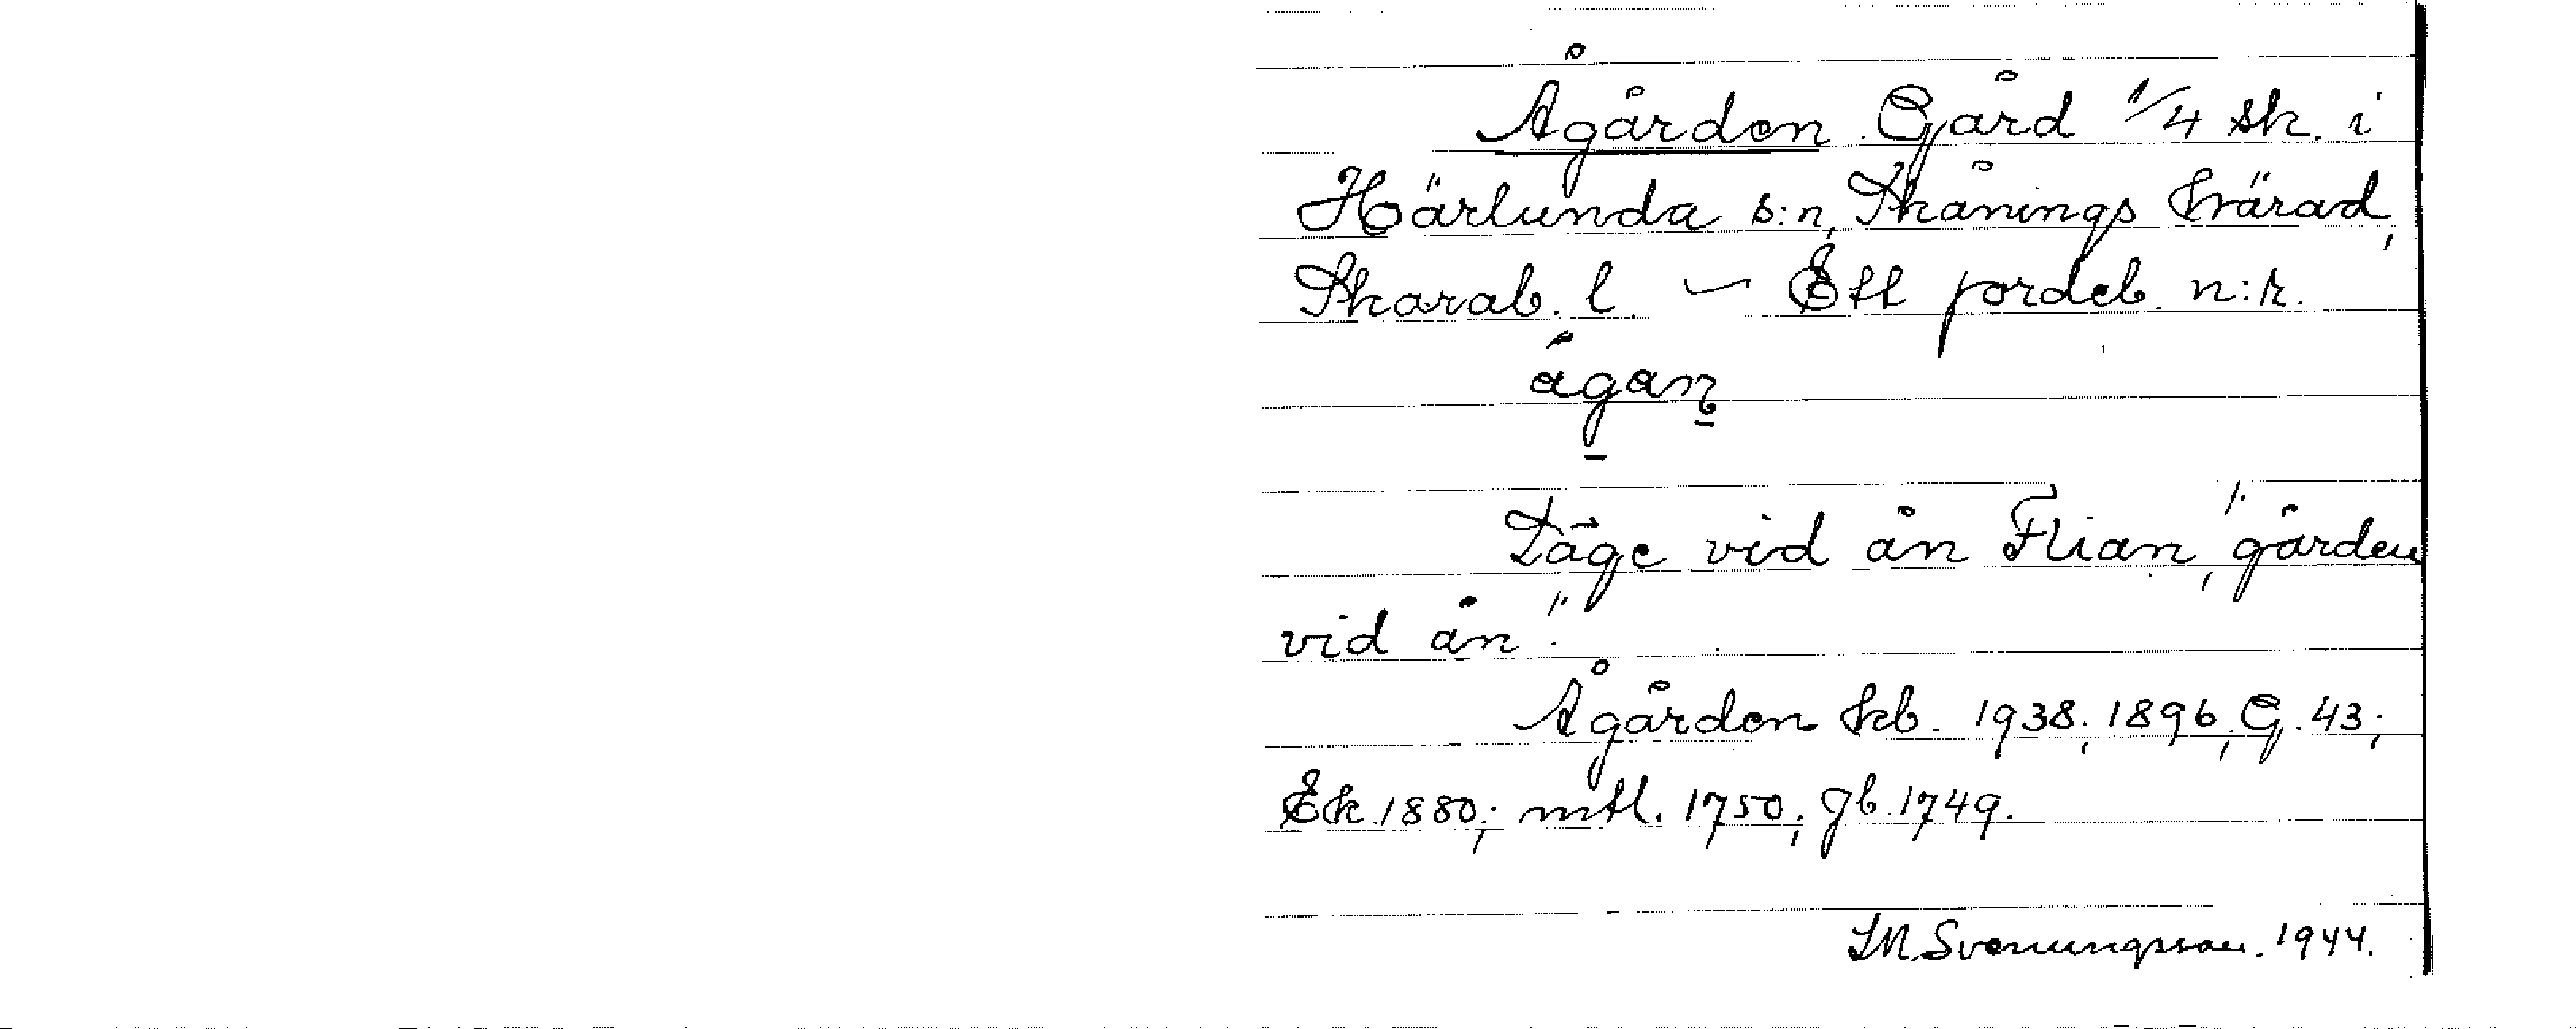 Ågården Gård 1/4 sk. i
Härlunda s:n, Skånings härad,
Skarab. l. – Ett jordeb. n:r.
ågaṉ
Läge vid ån Flian, "gården
vid ån".
Ågården Jrb. 1938; 1896; G. 43;
Ek. 1880; mtl. 1750; Jb. 1749.
S M Svenungsson. 1944.